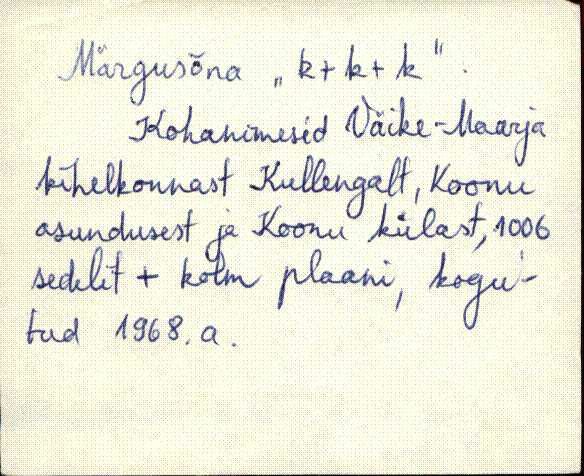 Märgusõna „k+k+k".
Kohanimesid Väike-Maarja
kihelkonnast Kullengalt, Koonu
asundusest ja Koonu külast, 1006
sedelit + kolm plaani, kogu-
tud 1968. a.